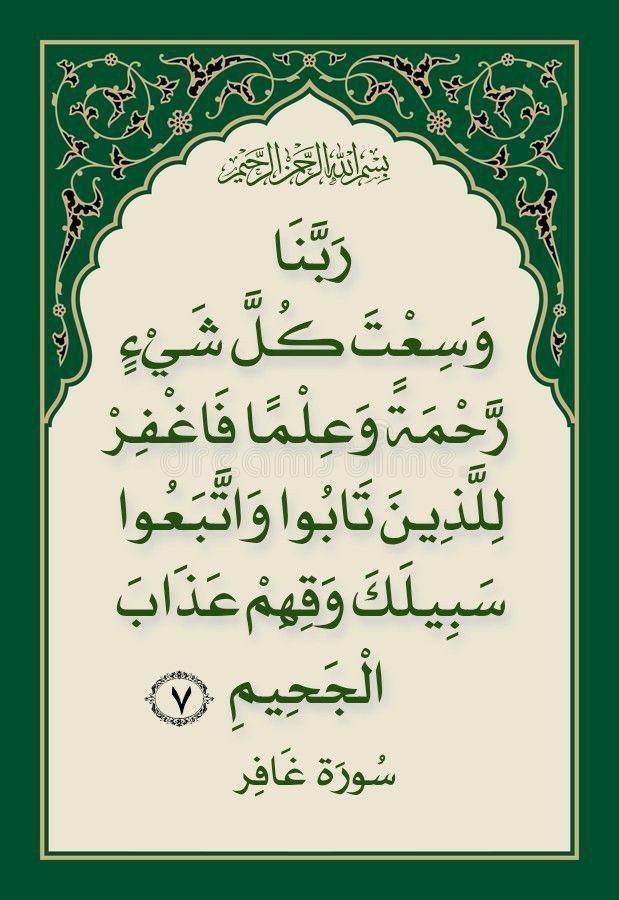 بِسْمِ اللهِ الرَّحْمٰنِ الرَّحِيْمِ
رَبَّنَا
وَسِعْتَ كُلَّ شَيْءٍ
رَّحْمَةً وَعِلْمًا فَاغْفِرْ
لِلَّذِينَ تَابُوا وَاتَّبَعُوا
سَبِيلَكَ وَقِهِمْ عَذَابَ
الْجَحِيمِ ٧
سُورَة غَافِر
dreamstime